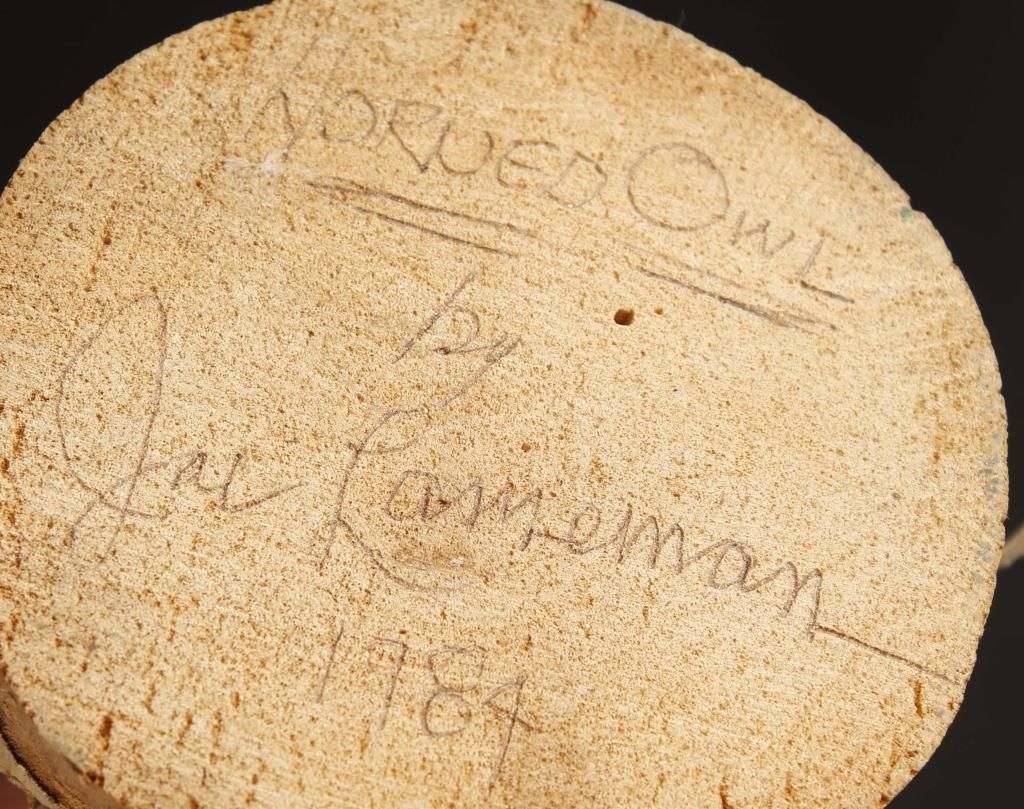 HORNED OWL
by
Jac Cameman
1984